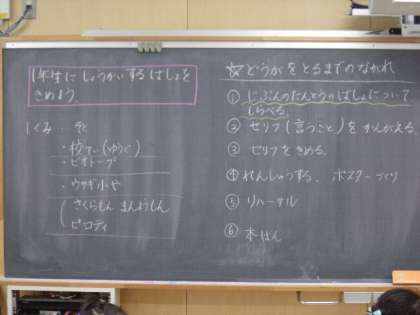 1年生にしょうかいするばしょを
きめよう。
1くみ:外
・校てい(ゆうぐ)
・ビオトープ
・ウサギ小や
さくらもん まんようもん
ピロティ
☆どうがをとるまでのながれ
① じぶんのたんとうのばしょについて
しらべる。
② セリフ(言うこと)をかんがえる。
③ セリフをきめる。
④ れんしゅうする、 ポスターづくり
⑤ リハーサル
⑥ 本ばん